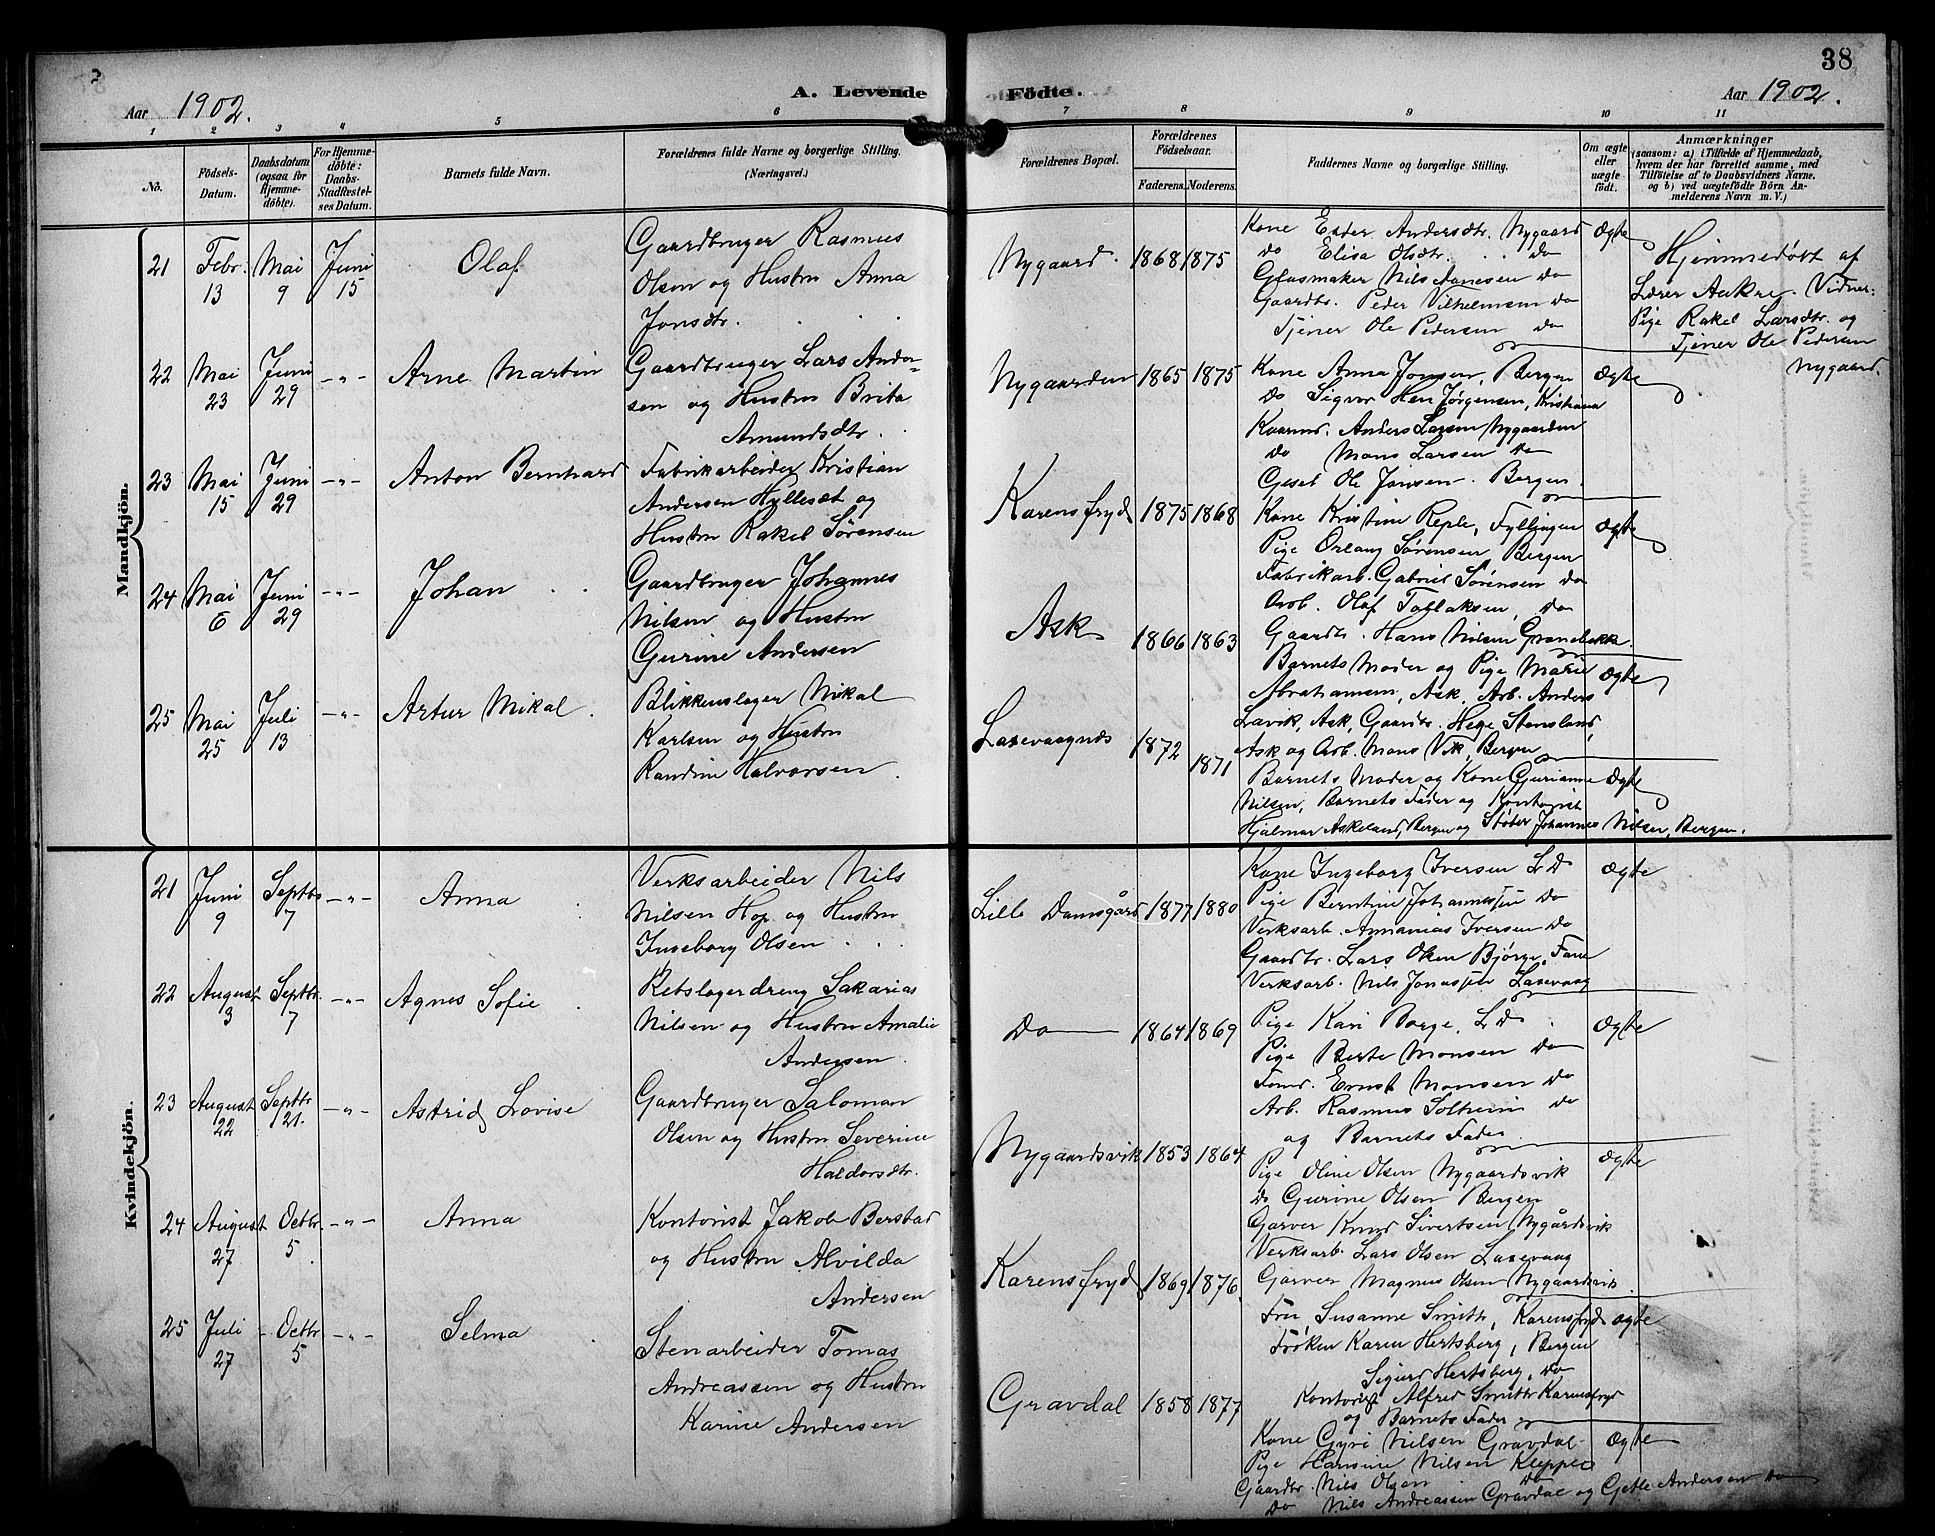 38
Aar 1902.
A. Levende Födte.
Aar 1902.
1 2 3 4 5 6 7 8 9 10 11
No.
Födsels-Datum.
Daabsdatum (ogsaa for Hjemmedöbte).
For Hjemmedöbte: Daabs-Stadfæstelses Datum.
Barnets fulde Navn.
Forældrenes fulde Navne og borgerlige Stilling. (Næringsvei.)
Forældrenes Bopæl.
Forældrenes Födselsaar.
Faderens. Moderens.
Faddernes Navne og borgerlige Stilling.
Om ægte eller uægte födt.
Anmærkninger
(saasom: a) i Tilfælde af Hjemmedaab,
hvem der har forrettet samme, med
Tilföielse af to Daabsvidners Navne,
og b) ved uægtefödte Börn Anmelderens
Navn m. V.)
Mandkjön.
21 Febr. 13 Mai 9 Juni 15 Olaf
Gaardbruger Rasmus
Olsen og Hustru Anna
Jonsdtr.
Nygaard. 1868 1875
Kone Ester Andersdtr. Nygaard
do Elisa Olsdtr. do
Glasmaker Nils Hansen do
Gaardbr. Peder Vilhelmsen do
Tjener Ole Pedersen do
Ægte
Hjemmedøbt af
Lærer Aakre. Vidner:
Pige Rakel Larsdtr. og
Tjener Ole Pedersen
Nygaard.
22 Mai 23 Juni 29 -"- Arne Martin
Gaardbruger Lars Ander-
sen og Hustru Brita
Amundsdtr.
Nygaarden 1865 1875
Kone Anna Jonsen, Bergen
do Sigvor Jørgensen,
Anders Larsen Nygaarden
do Mons Larsen do
Ole Jansen. Bergen
Ægte
23 Mai 15 Juni 29 -"- Anton Bernhard
Fabrikarbeider Kristian
Andersen Hyllesæt og
Hustru Rakel Sørensen
Karensfryd 1875 1868
Kone Kristine Reple, Fyllingen
Pige Orlaug Sørensen, Bergen
Fabrikarb. Gabriel Sørensen do
Arb. Olaf Tollaksen, do
Gaardb. Hans Nilsen Granebakke.
Ægte
24 Mai 6 Juni 29 -"- Johan
Gaardbruger Johannes
Nilsen og Hustru
Gurine Andersen
Ask 1866 1863
Barnets Moder og Pige Marie
Abrahamsen, Ask, Arb. Anders
Lavik, Ask, Gaardbr. Stensland,
Ask og Arb. Mons Vik, Bergen
Ægte
25 Mai 25 Juli 13 -"- Artur Mikal.
Blikkenslager Mikal
Karlsen og Hustru
Randine Halvorsen.
Laxevaagnæs 1872 1871
Barnets Moder og Kone Gurianne
Nilsen, Barnets Fader og Kontorist
Hjalmar Askeland, Bergen og Støber Johannes Nilsen, Bergen.
Ægte
Kvindekjön.
21 Juni 9 Septbr 7 -"- Anna
Verksarbeider Nils
Nilsen Hop og Hustru
Ingeborg Olsen
Lille Damsgård 1877 1880
Kone Ingeborg Iversen L D
Pige Berntine Johannessen do
Verksarb. Annanias Iversen do
Gaardbr. Lars Olsen Bjørge, Fane
Verksarb. Nils Jonassen Laxevaag
Ægte
22 August 3 Septbr. 7 -"- Agnes Sofie
Rebslagerdreng Sakarias
Nilsen og Hustru Amalie
Andersen.
Do 1864 1869
Pige Kari Borge, L D.
Pige Berte Monsen do
Ernst Monsen do
Arb. Rasmus Solheim do
og Barnets Fader.
Ægte
23 August 22 Septbr 21. -"- Astrid Lovise
Gaardbruger Saloman
Olsen og Hustru Severine
Haldorsdtr.
Nygaardsvik 1853 1864
Pige Oline Olsen Nygaardsvik
Do Gurine Olsen Bergen
Garver Knud Sivertsen Nygårdsvik
Verksarb. Lars Olsen Laxevaag
Garver Magnus Olsen Nygaardsvik.
Ægte
24 August 27 Octbr. 5 -"- Anna
Kontorist Jakob Berstad
og Hustru Alvilda
Andersen
Karensfryd 1869 1876.
Fru Susanne Smith, Karensfryd
Frøken Karen Hertsberg, Bergen
Sigurd Hertsberg, Do
Kontorist Alfred Smith Karensfryd
og Barnets Fader
Ægte
25 Juli 27 Octbr 5 -"- Selma
Stenarbeider Tomas
Andreassen og Hustru
Karine Andersen
Gravdal 1858 1877
Kone Gyri Nilsen Gravdal
Pige Hansine Nilsen Kleppe
Gaardbr. Nils Olsen Do
Do Nils Andreassen Gravdal og Andersen Do
Ægte